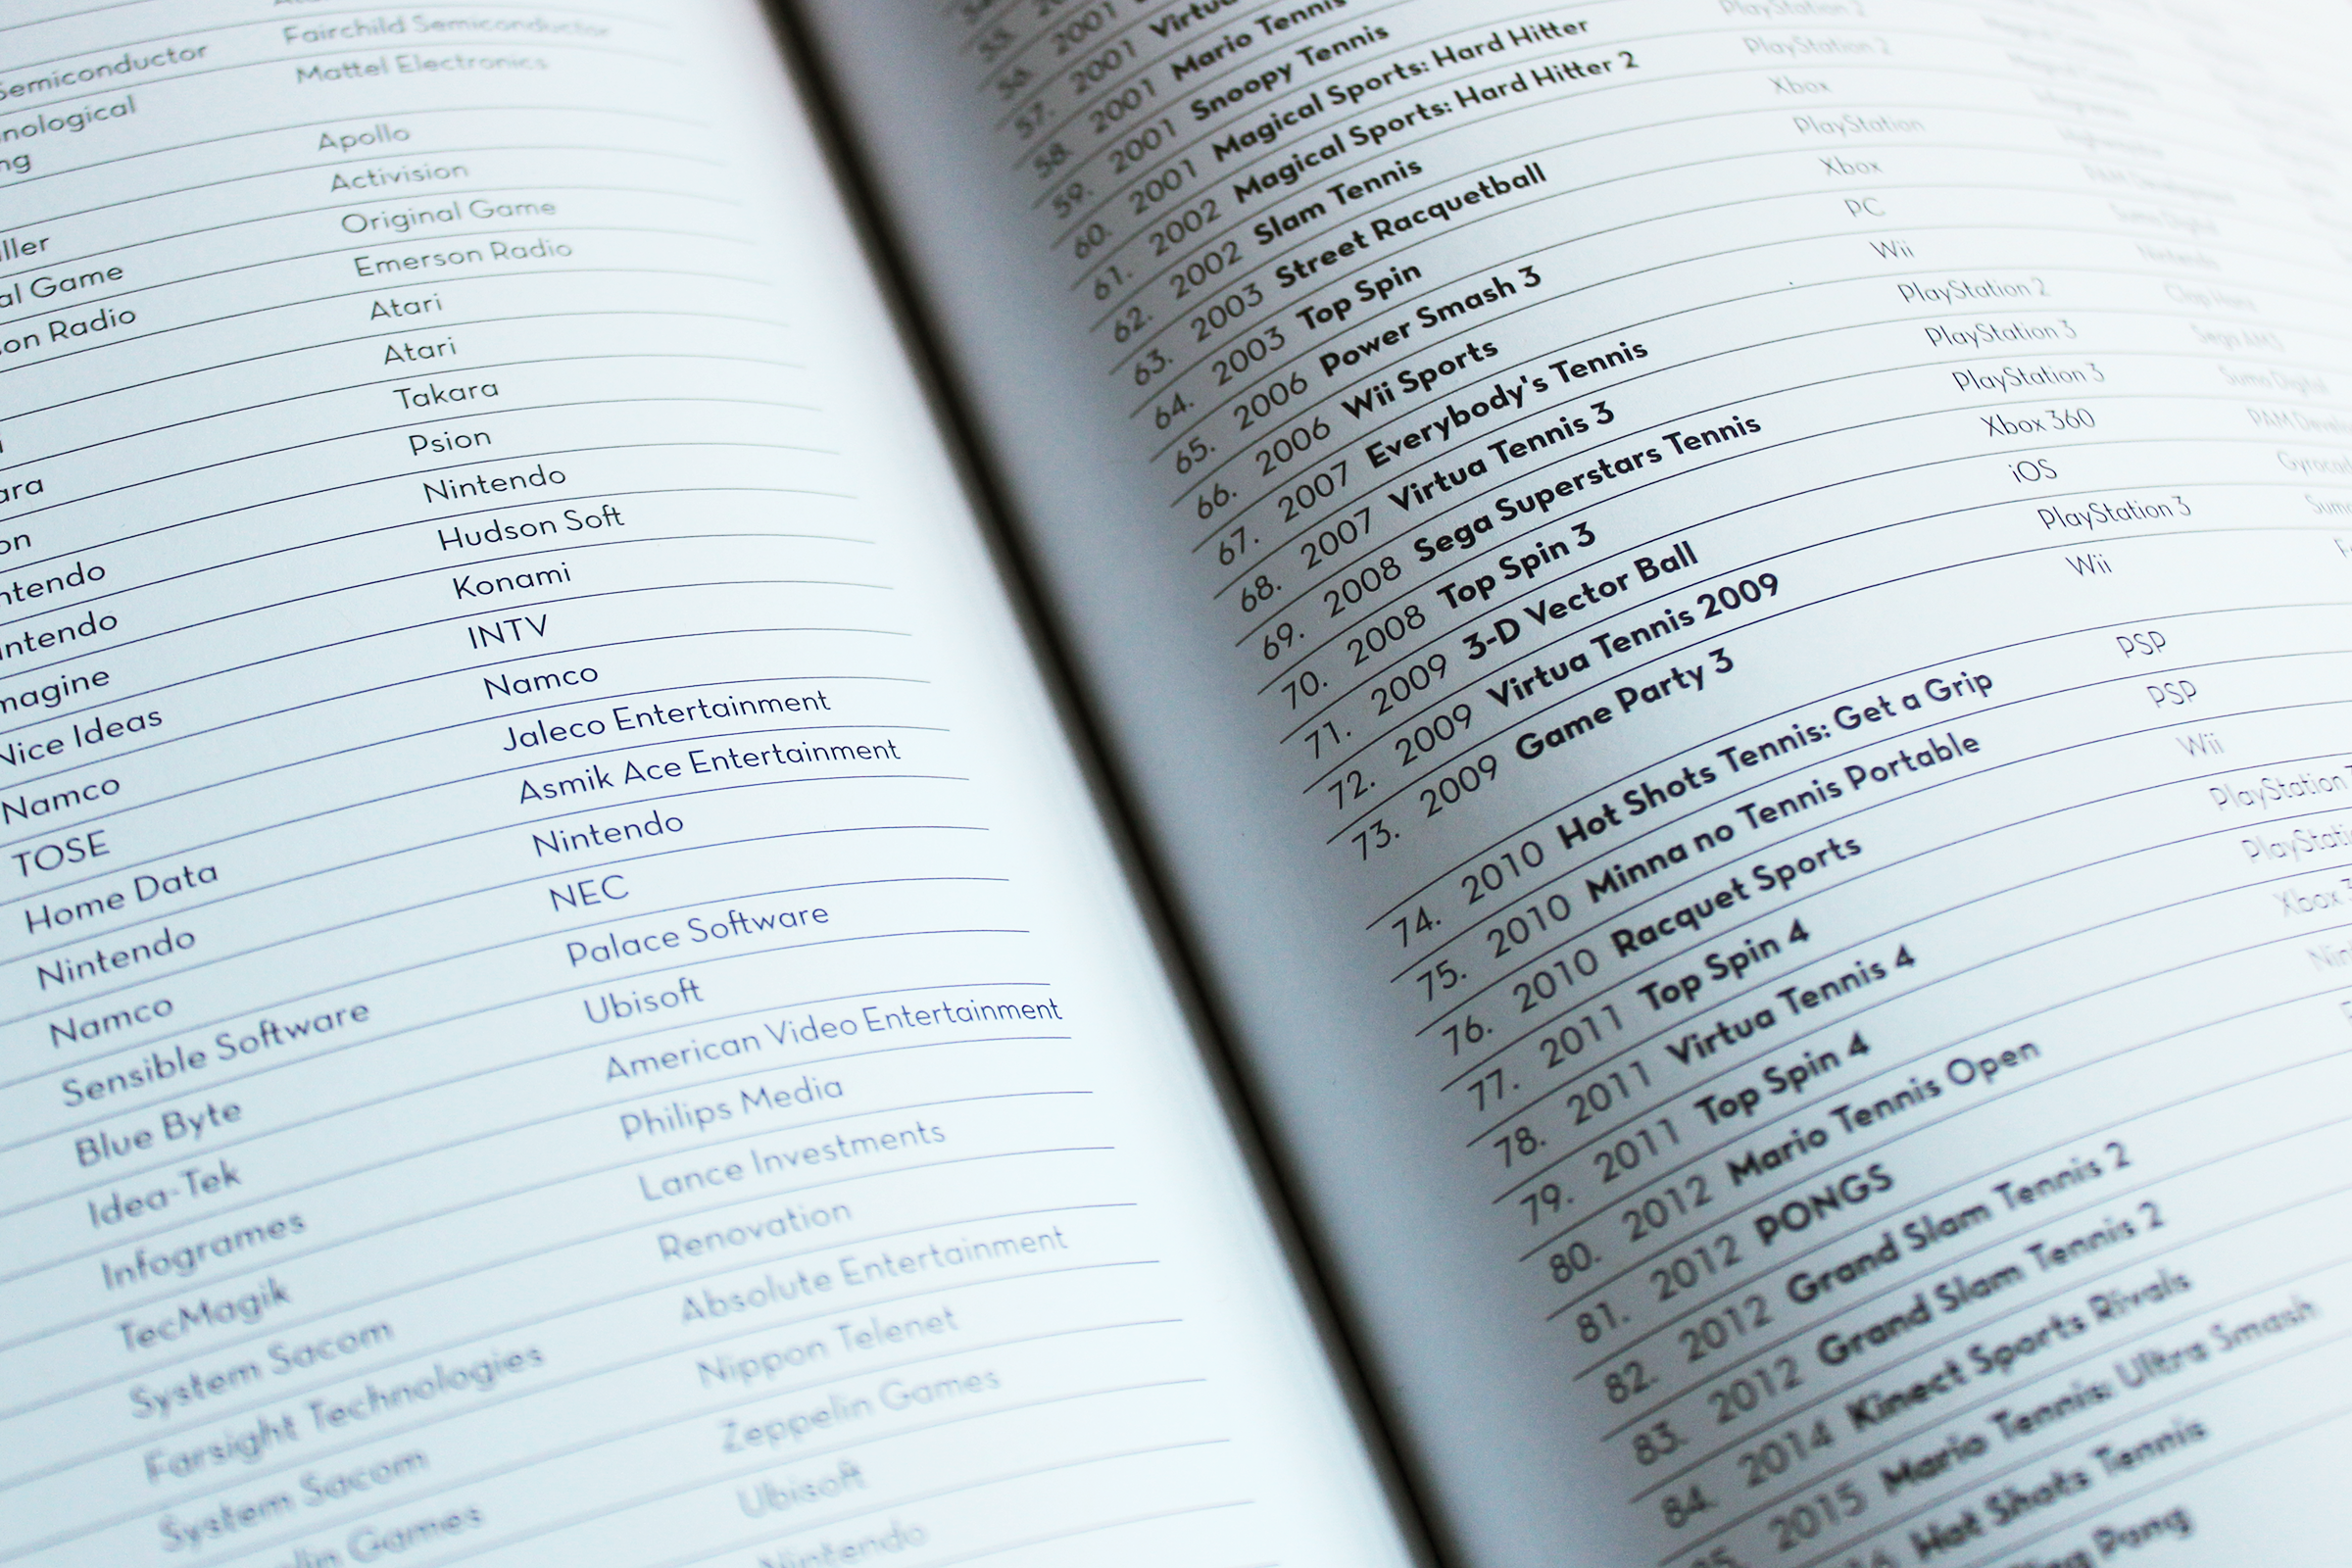 Semiconductor Fairchild Semiconductor
nological Mattel Electronics
ng
Apollo
ller Activision
al Game Original Game
on Radio Emerson Radio
Atari
Atari
ara Takara
on Psion
ntendo Nintendo
intendo Hudson Soft
magine Konami
Nice Ideas INTV
Namco Namco
TOSE Jaleco Entertainment
Home Data Asmik Ace Entertainment
Nintendo Nintendo
Namco NEC
Sensible Software Palace Software
Blue Byte Ubisoft
Idea-Tek American Video Entertainment
Infogrames Philips Media
TecMagik Lance Investments
System Sacom Renovation
Farsight Technologies Absolute Entertainment
System Sacom Nippon Telenet
lin Games Zeppelin Games
Ubisoft
Nintendo
57. 2001 Virtu
58. 2001 Mario Tennis
59. 2001 Snoopy Tennis
60. 2001 Magical Sports: Hard Hitter PlayStation 2
61. 2002 Magical Sports: Hard Hitter 2 PlayStation 2
62. 2002 Slam Tennis Xbox
63. 2003 Street Racquetball PlayStation
64. 2003 Top Spin Xbox
65. 2006 Power Smash 3 PC
66. 2006 Wii Sports Wii
67. 2007 Everybody's Tennis PlayStation 2
68. 2007 Virtua Tennis 3 PlayStation 3
69. 2008 Sega Superstars Tennis PlayStation 3
70. 2008 Top Spin 3 Xbox 360
71. 2009 3-D Vector Ball iOS
72. 2009 Virtua Tennis 2009 PlayStation 3
73. 2009 Game Party 3 Wii
74. 2010 Hot Shots Tennis: Get a Grip PSP
75. 2010 Minna no Tennis Portable PSP
76. 2010 Racquet Sports Wii
77. 2011 Top Spin 4 PlayStation
78. 2011 Virtua Tennis 4 PlayStati
79. 2011 Top Spin 4 Xbox 3
80. 2012 Mario Tennis Open Nin
81. 2012 PONGS
82. 2012 Grand Slam Tennis 2
83. 2012 Grand Slam Tennis 2
84. 2014 Kinect Sports Rivals
2015 Mario Tennis: Ultra Smash
Hot Shots Tennis
Pong